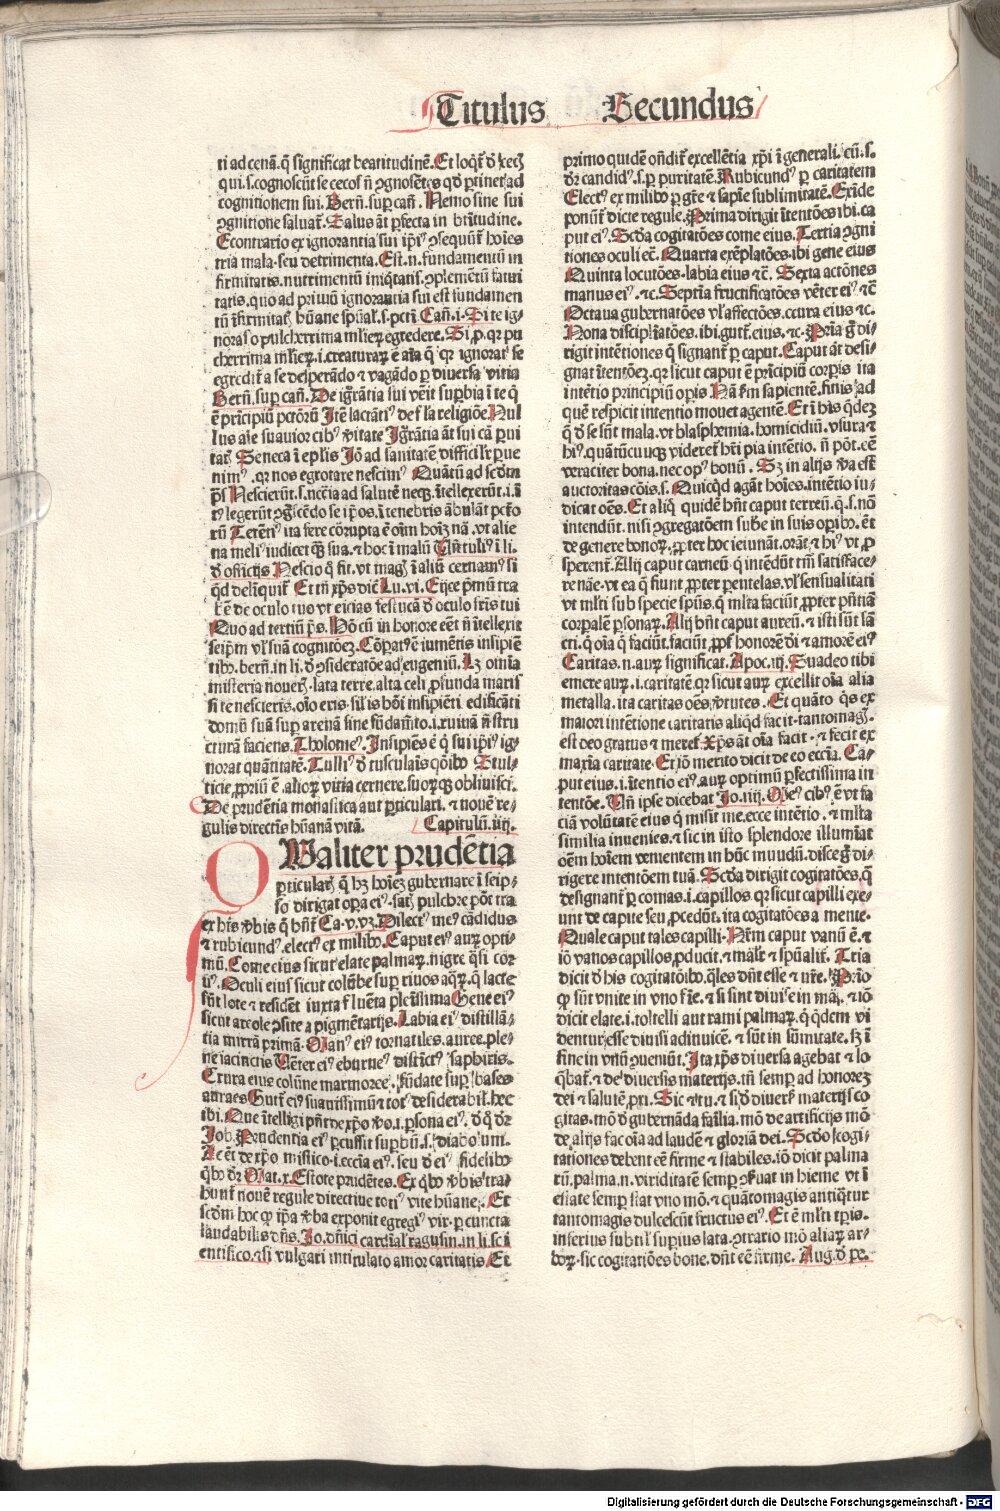 Titulus Secundus
ti ad cenā. q̄ significat beatitudinē. Et loqr̄ d̄ cecꝭ
qui .s. cognoscūt se cecos ñ ꝯgnosētes qd̄ ꝑtinet ad
cognitionem sui. Bern̄. suꝑ can̄. Nemo sine sui
ꝯgnitione saluat᷑. Salus āt ꝑfecta in btitudine.
Econtrario ex ignorantia sui ip̄i⁹ ꝯsequūt᷑ hoīes
tria mala. seu detrimenta. Est .n. fundamentū in
firmitatis. nutrimentū iniq̄tatis. ꝯplemētū fatui
tatis. quo ad primū ignorantia sui est fundamen
tū ifirmitatꝭ hūane spūalꝭ .s. pctī Can̄. i. Si te ig-
noras o pulcherrima ml̄ieꝝ egredere. Si .p. qꝛ pu
cherrima ml̄ieꝝ .i. creaturaꝝ ē aīa q̄ qꝛ ignorat se
egredit᷑ a se desperādo ⁊ vagādo ꝑ diuersa vitia
Bern̄. suꝑ can̄. De igrātia sui venit suꝑbia i te q̄
ē prīcipiū pctōrū Itē lactāti⁹ de f̄lsa religiōe. Nul
lus aīe suauior cib⁹ v̄itate Igrātia āt sui cā ꝑui
tatꝭ Seneca i eplīs Iō ad sanitatē difficilr̄ ꝑue
nim⁹. qꝛ nos egrotare nescim⁹ Quātū ad scd̄m
p̄s̄ Nescierūt .s. nccīa ad salutē neqꝫ ītellexerūt .i. ī
tꝰ legerūt ꝯgscēdo se ip̄os. i tenebris ābulāt pctō
rū Terēti⁹ ita fere corrupta ē oīm hoīꝫ nā. vt alie
na meli⁹ iudicet qȝ sua. ⁊ hoc ī malū Un̄ tuli⁹ i li.
d̄ officijs Nescio q̄ fit. vt magꝭ i aliū cernam⁹ si
qd̄ deliqūit᷑ Et tn̄ xp̄s dic̄ Lu. vi. Eijce p̄mū tra
bē de oculo tuo vt eicias festucā d̄ oculo fr̄is tui
Quo ad tertiū p̄s. Hō cū in honore eēt ñ itellexit
seipm̄ vl̓ suā cognitōeꝫ. Cōꝑat⁹ē iumētis insipiē
tibꝰ. bern̄. in li. d̄ ꝯsideratōe ad eugeniū. Lꝫ omīa
misteria noueris. lata terre. alta celi ꝓfunda maris
si te nescieris. oīo eris silis hōi insipiēti edificāti
domū suā suꝑ arenā sine fūdamēto. i. ruinā ñ stru
cturā faciens. Tholome⁹. Insipiēs ē q̄ sui ip̄i⁹ ig-
norat quātitatē. Tulli⁹ d̄ tusculaīs qōibꝰ Stul-
ticie ꝓpriū ē. alioꝝ vitia cernere. suoꝝqꝫ obliuisci.
De prudētia monastica aut ꝑticulari. ⁊ nouē re-
gulis directis hūanā vitā. Capitulū. iiij.
QValiter prudētia
ꝑticularꝭ q̄ hꝫ hoīeꝫ gubernare i seip-
so dirigat oꝑa ei⁹. satꝭ pulchre pōt tra
ex his v̄bis q̄ hn̄t᷑ Ca. v. vꝫ. Dilect⁹ me⁹ cādidus
⁊ rubicund⁹. elect⁹ ex milibꝰ. Caput ei⁹ auꝝ opti-
mū. Come eius sicut elate palmaꝝ. nigre qsi cor
u⁹. Oculi eius sicut colūbe suꝑ riuos aqꝝ. q̄ lacte
sūt lote ⁊ residēt iuxta fluēta plenissima Gene ei⁹
sicut areole ꝯsite a pigmētarijs. Labia ei⁹ distillā-
tia mirrā primā. Man⁹ ei⁹ tornatiles. auree. ple-
ne iacinctis Uēter ei⁹ eburne⁹ distīct⁹ saphiris.
Crura eius colūne marmoree. fūdate suꝑ bases
aureas Gutt᷑ ei⁹ suauissimū ⁊ tot⁹ desiderabilꝭ. hec
ibi. Que itelligi pn̄t de xp̄o v̄o. i. ꝑsona ei⁹. d̄ q̄ dr̄
Iob. Prudentia ei⁹ ꝑcussit suꝑbū .s. diabolum.
Ac ēt de xp̄o mistico. i. ecc̄ia ei⁹. seu d̄ ei⁹ fidelibꝰ
qbꝰ dr̄ Mat. x. Estote prudētes. Ex qbꝰ v̄bis tra-
hunt᷑ nouē regule directiue toti⁹ vite hūane. Et
scd̄m hoc q̄ ip̄a v̄ba exponit egregi⁹ vir. ꝑ cuncta
laudabilis dn̄s. Io. dn̄ici cardīalꝭ ragusin̄. in li. sci
entifico. ⁊si vulgari intitulato amor caritatis. Et
primo quidē on̄dit᷑ excellētia xp̄i i generali. cū .s.
dr̄ candid⁹ .s. ꝑ puritatē. Rubicund⁹ ꝑ caritatem
Elect⁹ ex milibꝰ ꝑ grē ⁊ sapīe sublimitatē. Exīde
ponūt᷑ dicte regule. Prima dirigit itentōes ibi. ca
put ei⁹. Scd̄a cogitatōes come eius. Tertia ꝯgni
tiones oculi eē. Quarta exēplatōes. ibi gene eius
Quinta locutōes. labia eius ⁊c̄. Sexta actōnes
manus ei⁹. ⁊c. Septīa fructificatōes vēter ei⁹ ⁊c̄
Octaua gubernatōes vl̓ affectōes. crura eius ⁊c.
Nona disciplīatōes. ibi. gutt᷑. eius. ⁊c. Prīa g̊ di-
rigit intētiones q̄ signant᷑ ꝑ caput. Caput āt desi-
gnat itentōeꝫ. qꝛ sicut caput ē prīcipiū corꝑis ita
intētio principiū oꝑis. Nā f̄m sapientē. finis ad
quē respicit intentio mouet agentē. Et i his qdeꝫ
q̄ d̄ se sūt mala. vt blasphemia. homicidiū. vsura ⁊
hi⁹. quātūcūqꝫ videret᷑ hr̄i pia intētio. ñ pōt. eē
veraciter bona. nec op⁹ bonū. Sꝫ in alijs v̄a est
auctoritas cōis .s. Quicqd agāt hoīes. intētio iu-
dicat oēs. Et aliq̄ quidē hn̄t caput terreū. q̄ .s. nō
intendūt. nisi ꝯgregatōem sube in suis oꝑibꝰ. ēt
de genere bonoꝝ. ꝓpter hoc ieiunāt. orāt. ⁊ hi⁹ vt ꝓ
sperent᷑. Alij caput carneū q̄ intēdūt tm̄ satisface-
re nāe. vt ea q̄ fiunt ꝓpter pentelas. vl̓ sensualitati
vt ml̄ti sub specie spūs. q̄ ml̄ta faciūt ꝓpter pn̄tiā
corꝑalē ꝑsonaꝝ. Alij hn̄t caput aureū. ⁊ isti sūt sā-
cti. q̄ oīa q̄ faciūt. faciūt ꝓpt᷑ honorē dī ⁊ amorē ei⁹
Caritas .n. auꝝ significat. Apoc. iij. Suadeo tibi
emere auꝝ .i. caritatē. qꝛ sicut auꝝ excellit oīa alia
metalla. ita caritas oēs v̄tutes. Et quāto qs ex
maiori intētione caritatis aliqd facit. tantomagꝭ.
est deo gratus ⁊ meret᷑. Xp̄s āt oīa facit. ⁊ fecit ex
maxīa caritate. Et iō merito dicit de eo ecc̄ia. Ca-
put eius .i. itentio ei⁹. auꝝ optimū ꝑfectissima in
tentōe. Un̄ ipse dicebat Jo. iiij. Me⁹ cib⁹ ē vt fa
ciā volūtatē eius q̄ misit me. ecce intētio. ⁊ ml̄ta
similia inuenies. ⁊ sic in isto splendore illumīat
oēm hoīem venientem in hūc mūudū. disce g̊ di-
rigere intentōem tuā. Scd̄a dirigit cogitatōes. q̄
designant᷑ ꝑ comas .i. capillos qꝛ sicut capilli exe-
unt de capite seu ꝓcedūt. ita cogitatōes a mente.
Quale caput tales capilli. Nm̄ caput vanū ē. ⁊
iō vanos capillos ꝓducit. ⁊ mālr̄ ⁊ spūalit᷑. Tria
dicit d̄ his cogitatōibꝰ. qles dn̄t esse ⁊ vr̄e. Prīo
ꝙ sūt vnite in vno fīe. ⁊ si sint diuise in mā. ⁊ iō
dicit elate .i. toltelli aut rami palmaꝝ. q̄ qdem vi
dentur esse diuisi adinuicē. ⁊ sūt in sūmitate. sꝫ i
fine in vnū ꝯueniūt. Ita xp̄s diuersa agebat ⁊ lo
q̄bat᷑. ⁊ de diuersis materijs. tn̄ semꝑ ad honoreꝫ
dei ⁊ salutē ꝓxi. Sic ⁊ tu. ⁊ si d̄ diuersꝭ materijs co
gitas. mō d̄ gubernāda familia. mō de artificijs mō
de alijs fac oīa ad laudē ⁊ gloriā dei. Scd̄o cogi-
tationes debent eē firme ⁊ stabiles. iō dicit palma
rū. palma .n. viriditatē semꝑ ꝯseruat in hieme vt i
estate semꝑ stat vno mō. ⁊ quātomagis antiqtur
tantomagis dulcescūt fructus ei⁹. Et ē ml̄ti tꝑis.
inferius subtilꝭ suꝑius lata. ꝯtrario mō aliaꝝ ar-
boꝝ. sic cogitatiōes bone. dn̄t eē firme. Aug. d̄ pe.
Digitalisierung gefördert durch die Deutsche Forschungsgemeinschaft - DFG